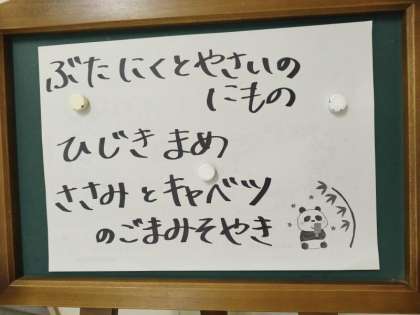 ぶたにくとやさいの
にもの
ひじきまめ
ささみとキャベツ
のごまみそやき